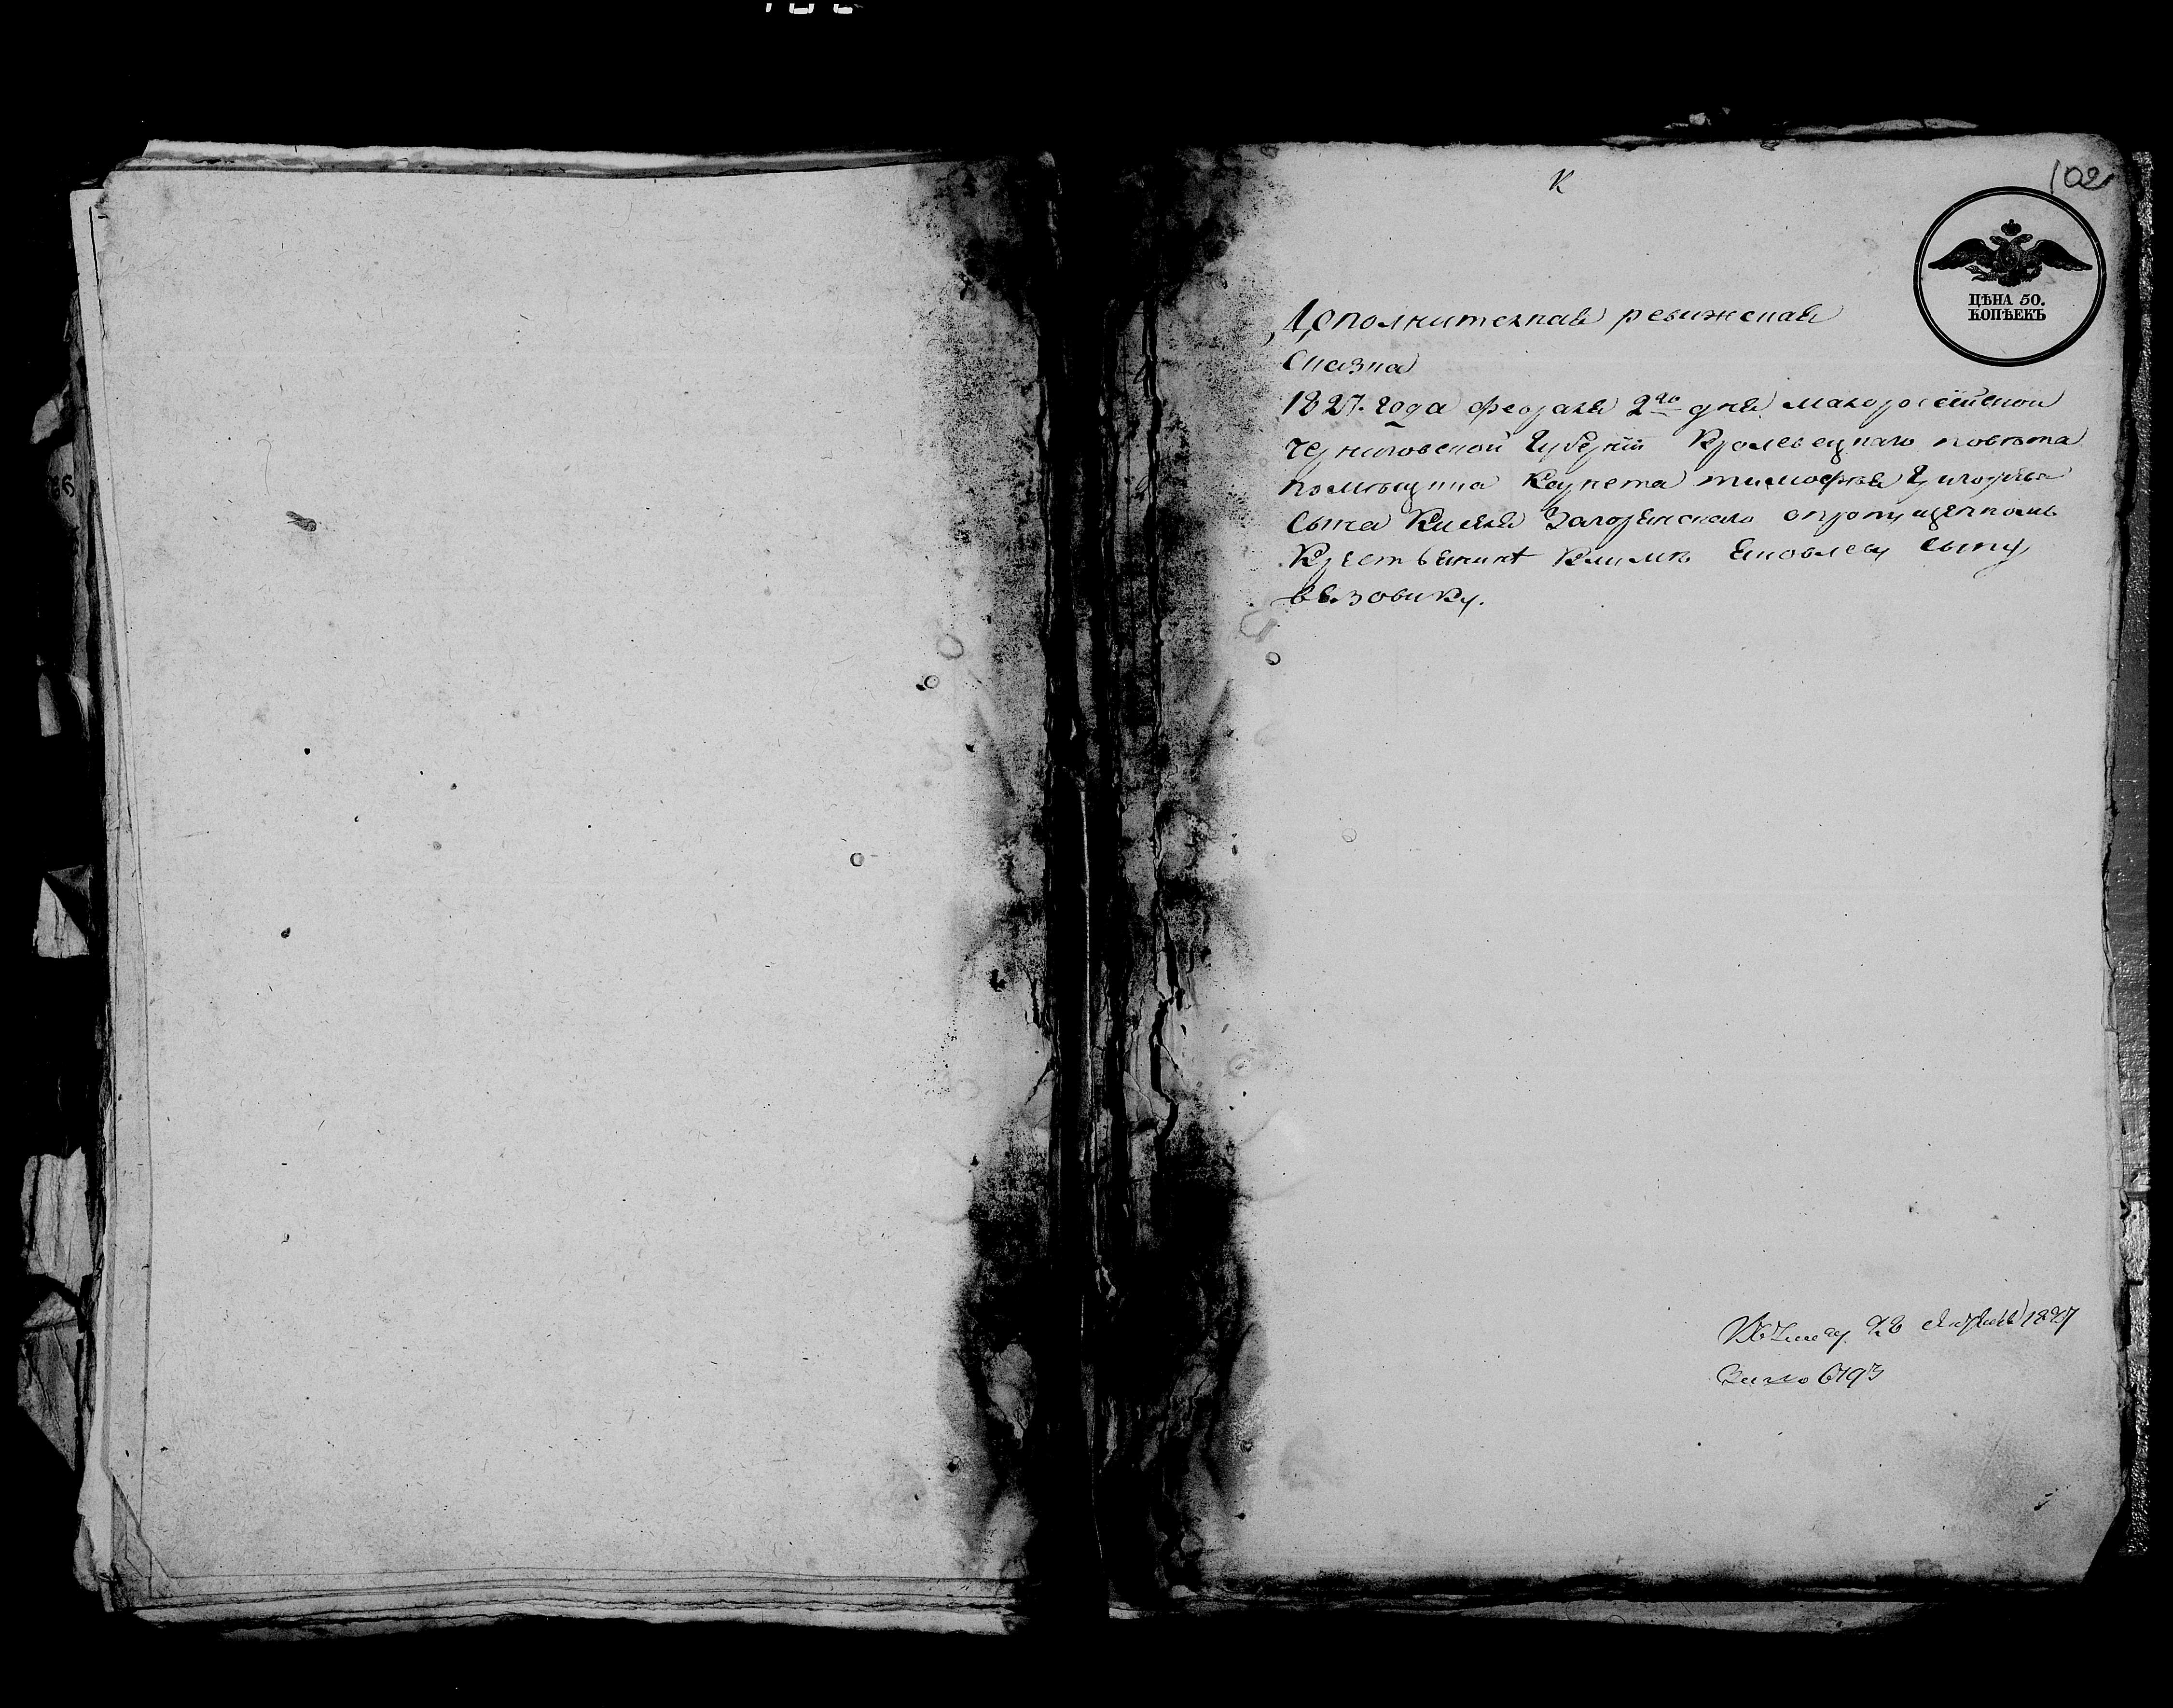 К
102
ЦѢНА 50.
КОПѢЕКЪ
Дополнителная ревижская
Сказка
1827. года февраля 2го дня малоросѣйской
черниговской Губернѣи Кролевецкаго повѣта
помѣщика Корнета тимофея Григорьева
Сына Киселя Загоровскаго о пропущенномъ
Крестьянинѣ Климѣ Яковлеву Сыну
вязовику.
28 Апреля 1827
6193